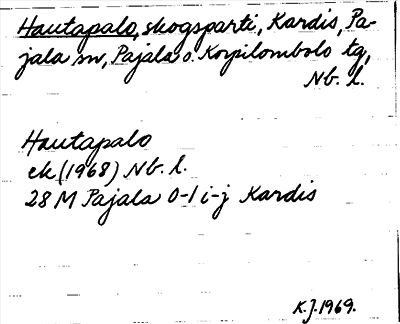 Hautapalo, skogsparti, Kardis, Pa-
jala sn, Pajala o. Korpilombolo tg,
Nb. l.
Hautapalo
ek (1968) Nb. l.
28 M Pajala 0-1 i-j Kardis
K.J. 1969.